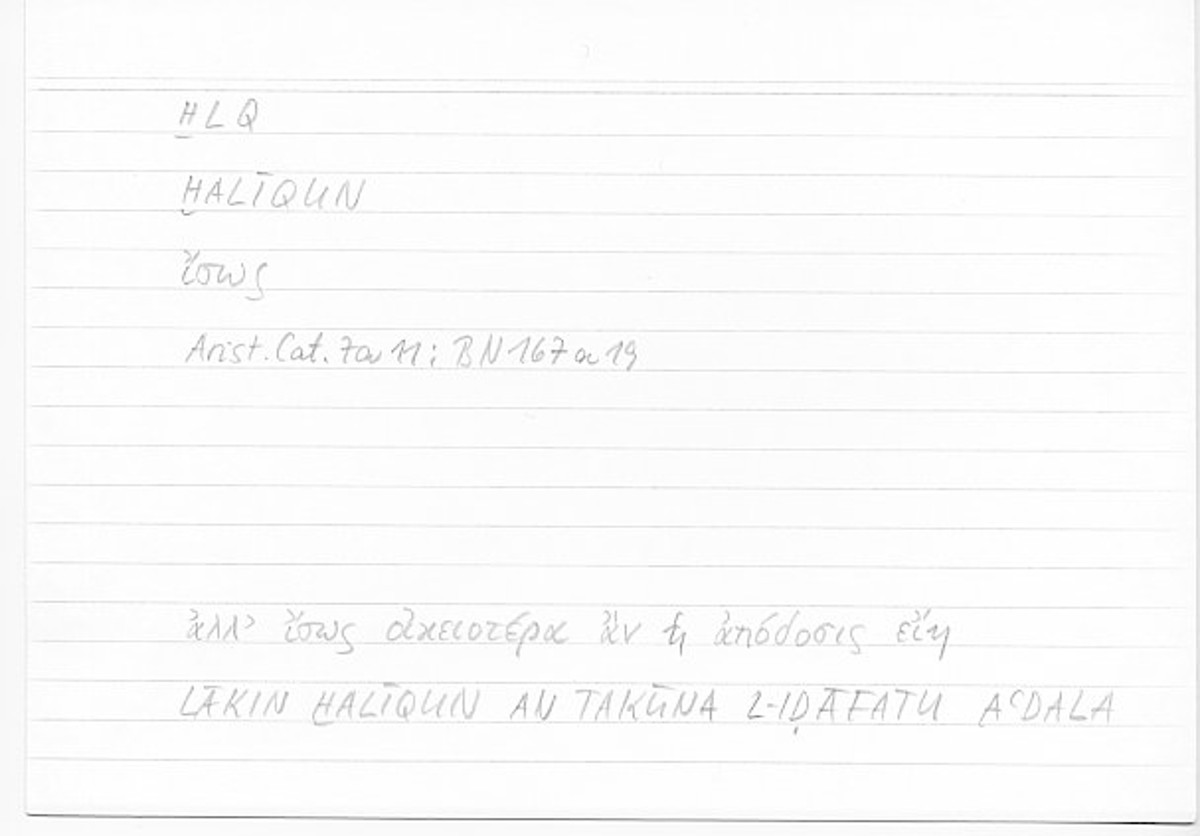 ḪLQ
ḪALĪQUN
ἴσως
Arist. Cat. 7a 11; BN 167a 19
ἀλλ' ἴσως οἰκειοτέρα ἂν ἡ ἀπόδοσις εἴη
LĀKIN ḪALĪQUN AN TAKŪNA L-IḌĀFATU AʿDALA